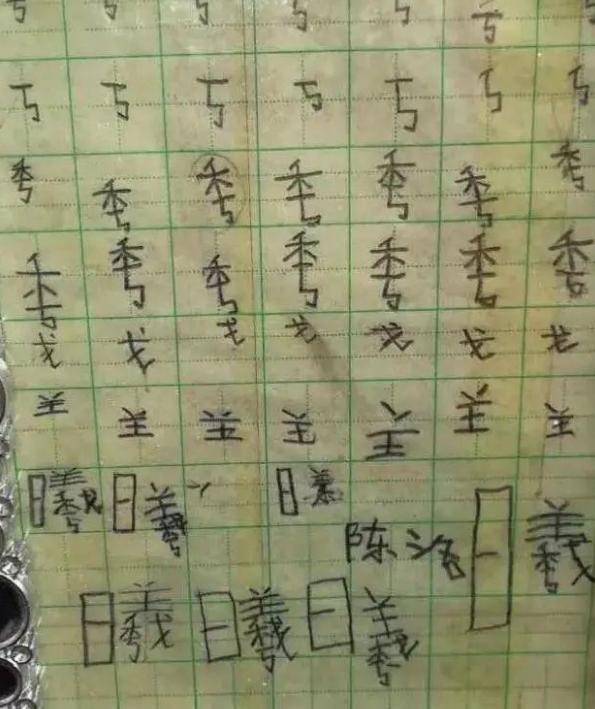 丂 丂 丂 丂 丂 丂 丂
丂 丂 丂 丂 丂 丂 丂
秀 秀 秀 秀 秀 秀 秀
秀 秀 秀 秀 秀 秀 秀
戈 戈 戈 戈 戈 戈 戈
𦍌 𦍌 𦍌 𦍌 𦍌 𦍌 𦍌
曦 曦
陈洺曦
曦 曦 曦